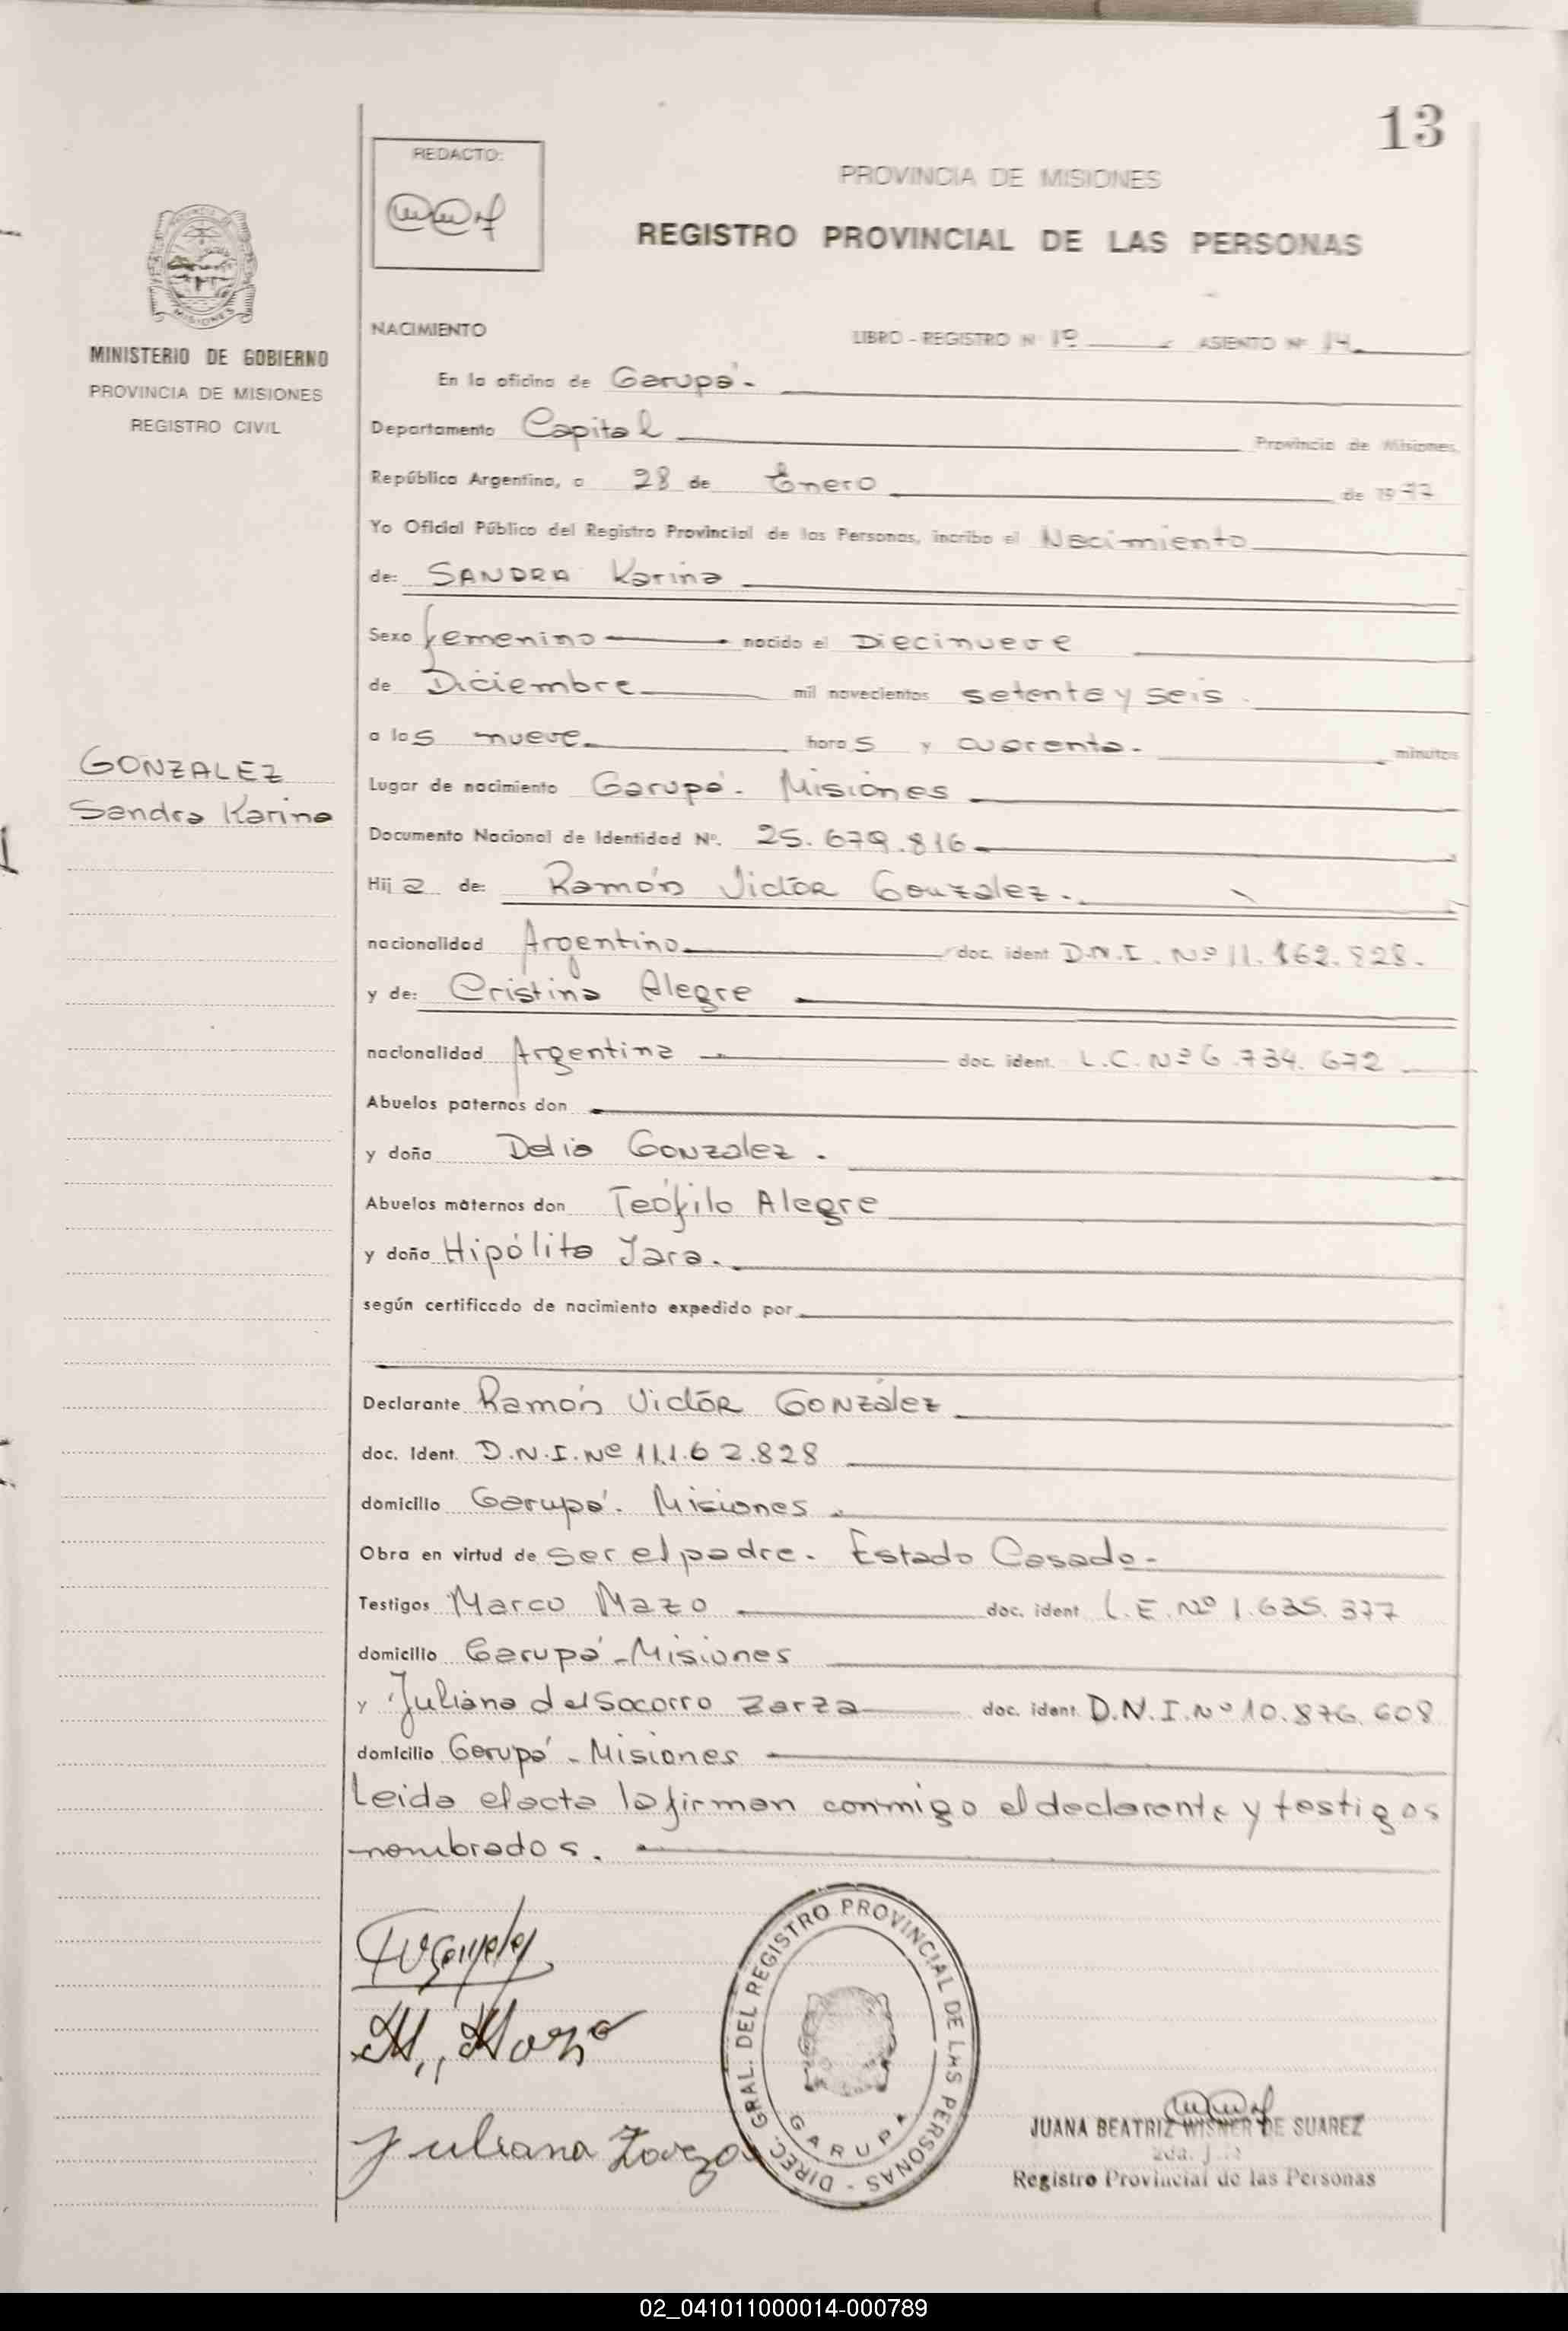 13
REDACTO:
PROVINCIA DE MISIONES
REGISTRO PROVINCIAL DE LAS PERSONAS
MINISTERIO DE GOBIERNO
PROVINCIA DE MISIONES
REGISTRO CIVIL
NACIMIENTO LIBRO - REGISTRO Nº 1º ASIENTO Nº 14
En la oficina de Garupá.
Departamento Capital Provincia de Misiones,
República Argentina, a 28 de Enero de 1977
Yo Oficial Público del Registro Provincial de las Personas, incribo el Nacimiento
de: SANDRA Karina
Sexo femenino nacido el Diecinueve
de Diciembre mil novecientos setenta y seis.
a las nueve horas y cuarenta. minutos
GONZALEZ
Sandra Karina
Lugar de nacimiento Garupá. Misiones
Documento Nacional de Identidad Nº. 25.679.816
Hija de: Ramón Victor Gonzalez.
nacionalidad Argentino doc. ident D.N.I. Nº 11.162.828.
y de: Cristina Alegre
nacionalidad Argentina doc. ident. L.C. Nº 6.734.672
Abuelos paternos don
y doña Delia Gonzalez.
Abuelos maternos don Teófilo Alegre
y doña Hipólita Jara.
según certificado de nacimiento expedido por
Declarante Ramón Victor González
doc. Ident. D.N.I. Nº 11.162.828
domicilio Garupá. Misiones
Obra en virtud de ser el padre. Estado Casado-
Testigos Marco Mazo doc. ident L.E. Nº 1.635.377
domicilio Garupá - Misiones
y Juliana del Socorro Zarza doc. ident. D.N.I. Nº 10.876.608
domicilio Garupá - Misiones
Leida el acta la firman conmigo el declarante y testigos
nombrados.
M. Mazo
Juliana Zarza
DIREC. GRAL. DEL REGISTRO PROVINCIAL DE LAS PERSONAS -
GARUPA
JUANA BEATRIZ WISNER DE SUAREZ
Registro Provincial de las Personas
02_041011000014-000789